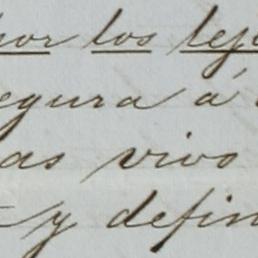 por los lej
egura á
as vivo
y defin